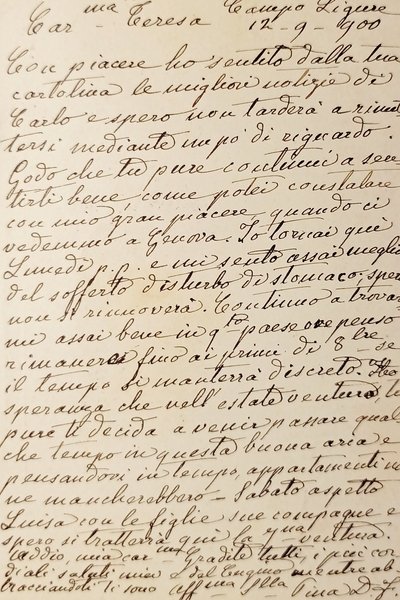 Car.ma Teresa Campo Ligure
12-9-900
Con piacere ho sentito dalla tua
cartolina le migliori notizie di
Carlo e spero non tarderà a rimet
tersi mediante un pò di riguardo.
Godo che tu pure continui a sen
tirti bene come potei constatare
con mio gran piacere quando ci
vedemmo a Genova. Io tornai qui
Lunedì p.p. e mi sento assai meglio
del sofferto disturbo di stomaco; spero
non si rinnoverà. Continuo a trovar
mi assai bene in q.to paese ove penso
rimanere fino ai primi di 8bre se
il tempo si manterrà discreto. Ho
speranza che nell'estate ventura tu
pure ti decida a venir passare qual
che tempo in questa buona aria e
pensandovi in tempo, appartamenti non
ne mancherebbero - Sabato aspetto
Luisa con le figlie sue compagne e
spero si tratterrà qui la ventura.
Addio, mia car.ma Gradite tutti, i più cor
diali saluti miei e del Eugenio mentre ab
bracciandoti ti sono aff.ma Tina D. F.